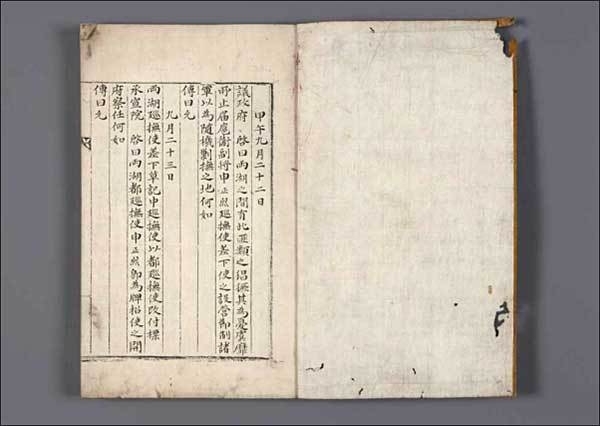 甲午九月二十二日
議政府 啓曰兩湖之間有此匪類之猖獗其爲憂虞靡
所止屆扈衛副將申正熙巡撫使差下使之設營節制諸
軍以爲隨機剿撫之地何如
傳曰允
九月二十三日
兩湖巡撫使差下草記中巡撫使以都巡撫使改付標
承宣院 啓曰兩湖都巡撫使申正熙卽爲牌招使之開
府察任何如
傳曰允